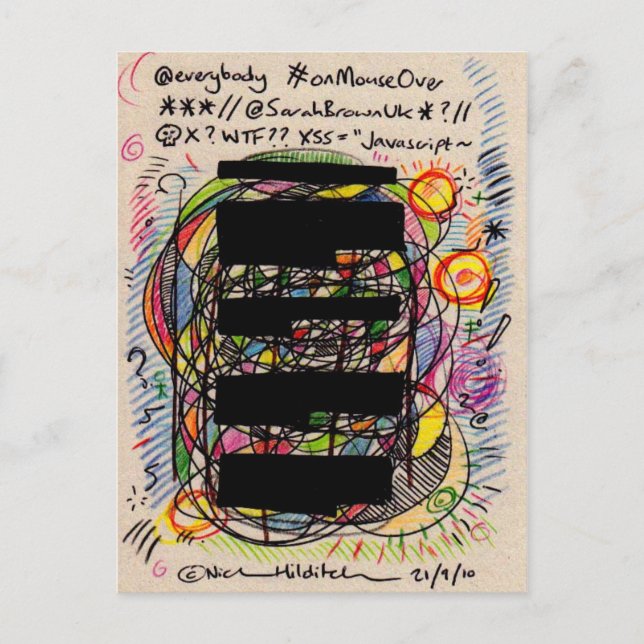 @everybody #onMouseOver
***//@SarahBrownUk*?//
☠X?WTF?? XSS="Javascript~
©Nick Hilditch 21/9/10